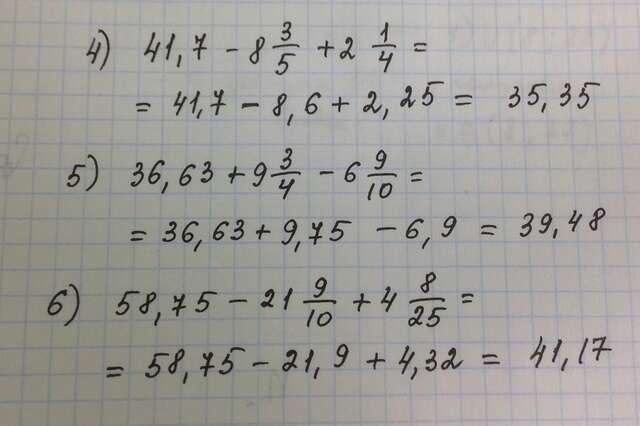 4) 41,7 - 8 3/5 + 2 1/4 =
= 41,7 - 8,6 + 2,25 = 35,35
5) 36,63 + 9 3/4 - 6 9/10 =
= 36,63 + 9,75 - 6,9 = 39,48
6) 58,75 - 21 9/10 + 4 8/25 =
= 58,75 - 21,9 + 4,32 = 41,17